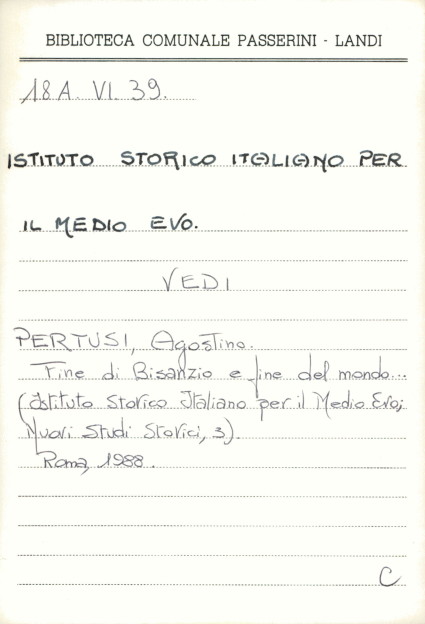 BIBLIOTECA COMUNALE PASSERINI - LANDI
18A. VI. 39.
ISTITUTO STORICO ITALIANO PER
IL MEDIO EVO.
VEDI
PERTUSI, Agostino.
Fine di Bisanzio e fine del mondo...
(Istituto Storico Italiano per il Medio Evo;
Nuovi Studi Storici, 3).
Roma, 1988.
C